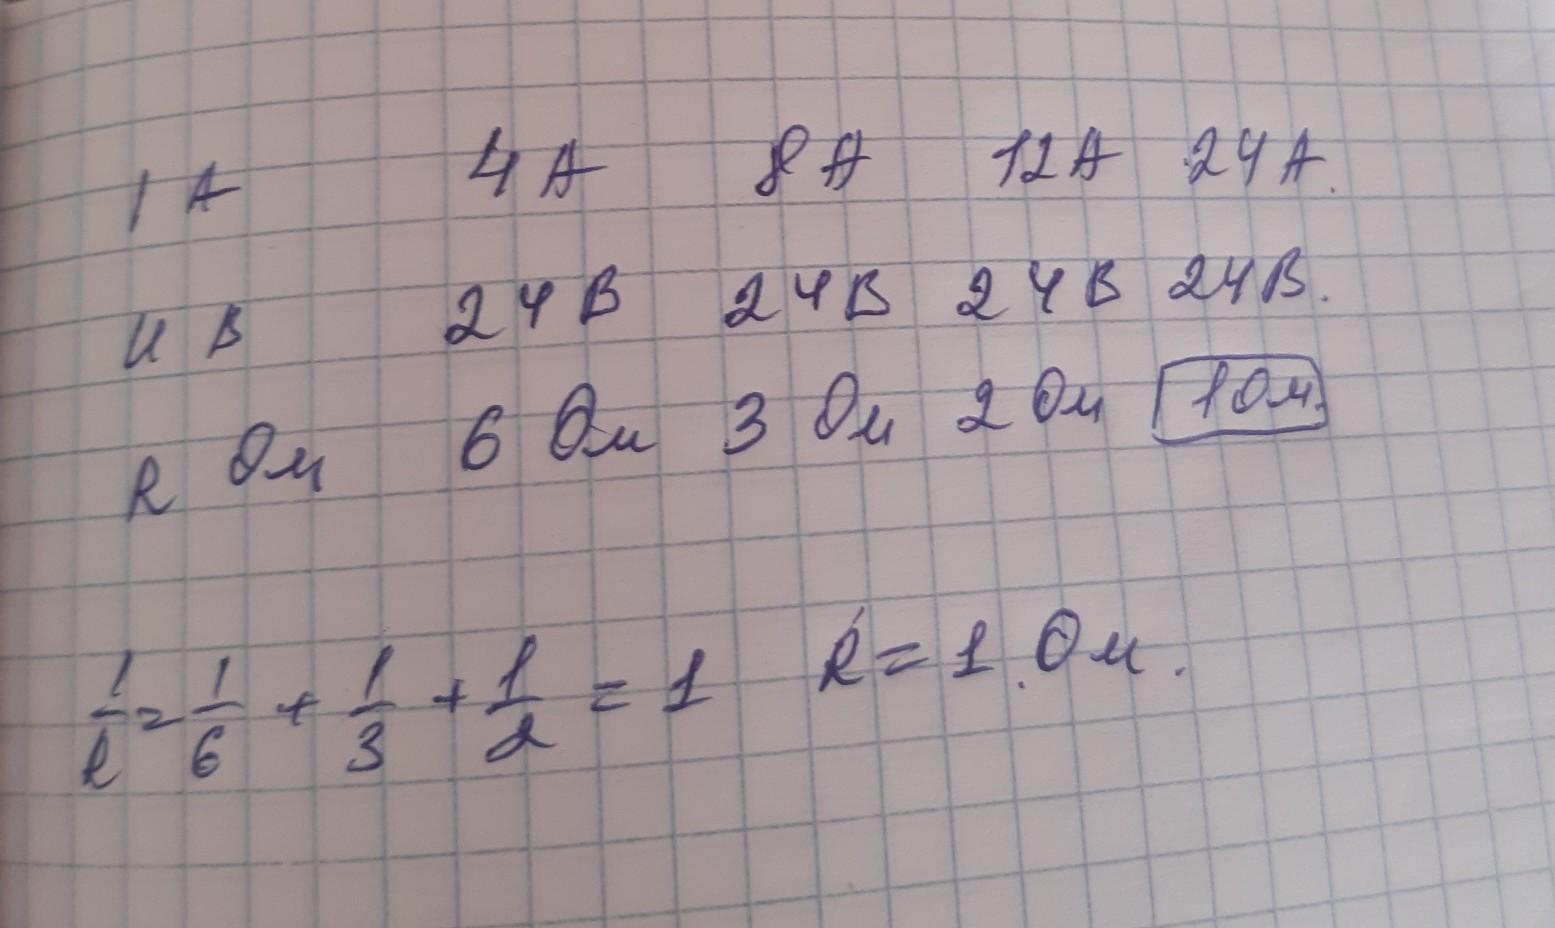 I А 4 А 8 А 12 А 24 А.
U В 24 В 24 В 24 В 24 В.
R Ом 6 Ом 3 Ом 2 Ом 1 Ом.
1/R = 1/6 + 1/3 + 1/2 = 1 R = 1 Ом.